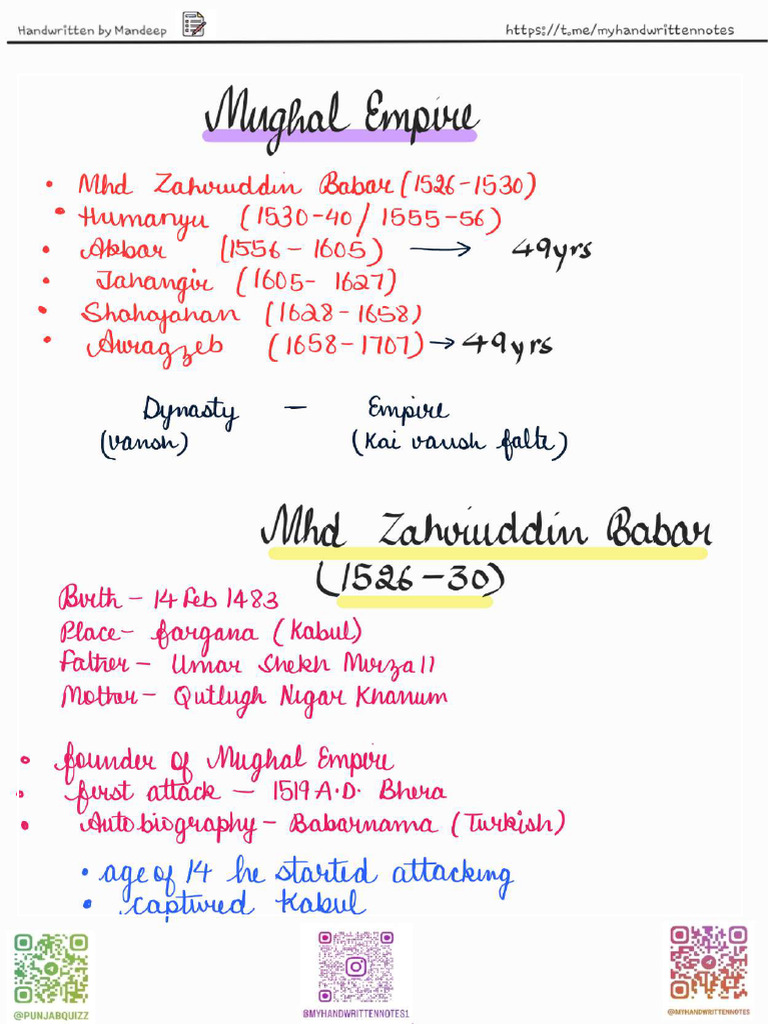 Handwritten by Mandeep
https://t.me/myhandwrittennotes
Mughal Empire
• Mhd Zahiruddin Babar (1526-1530)
• Humanyu (1530-40/ 1555-56)
• Akbar (1556 - 1605) → 49yrs
• Jahangir (1605- 1627)
• Shahajahan (1628-1658)
• Auragzeb (1658-1707) → 49yrs
Dynasty - Empire
(vansh) (Kai vansh falte)
Mhd Zahoiuddin Babar
(1526-30)
Birth - 14 Feb 1483
Place- fargana (Kabul)
Father - Umar Shekh Mirza II
Mother - Qutlugh Nigar Khanum
• founder of Mughal Empire
• first attack - 1519 A.D. Bhera
• Autobiography - Babarnama (Turkish)
• age of 14 he started attacking
• captured Kabul
@PUNJABQUIZZ
@MYHANDWRITTENNOTES1
@MYHANDWRITTENNOTES